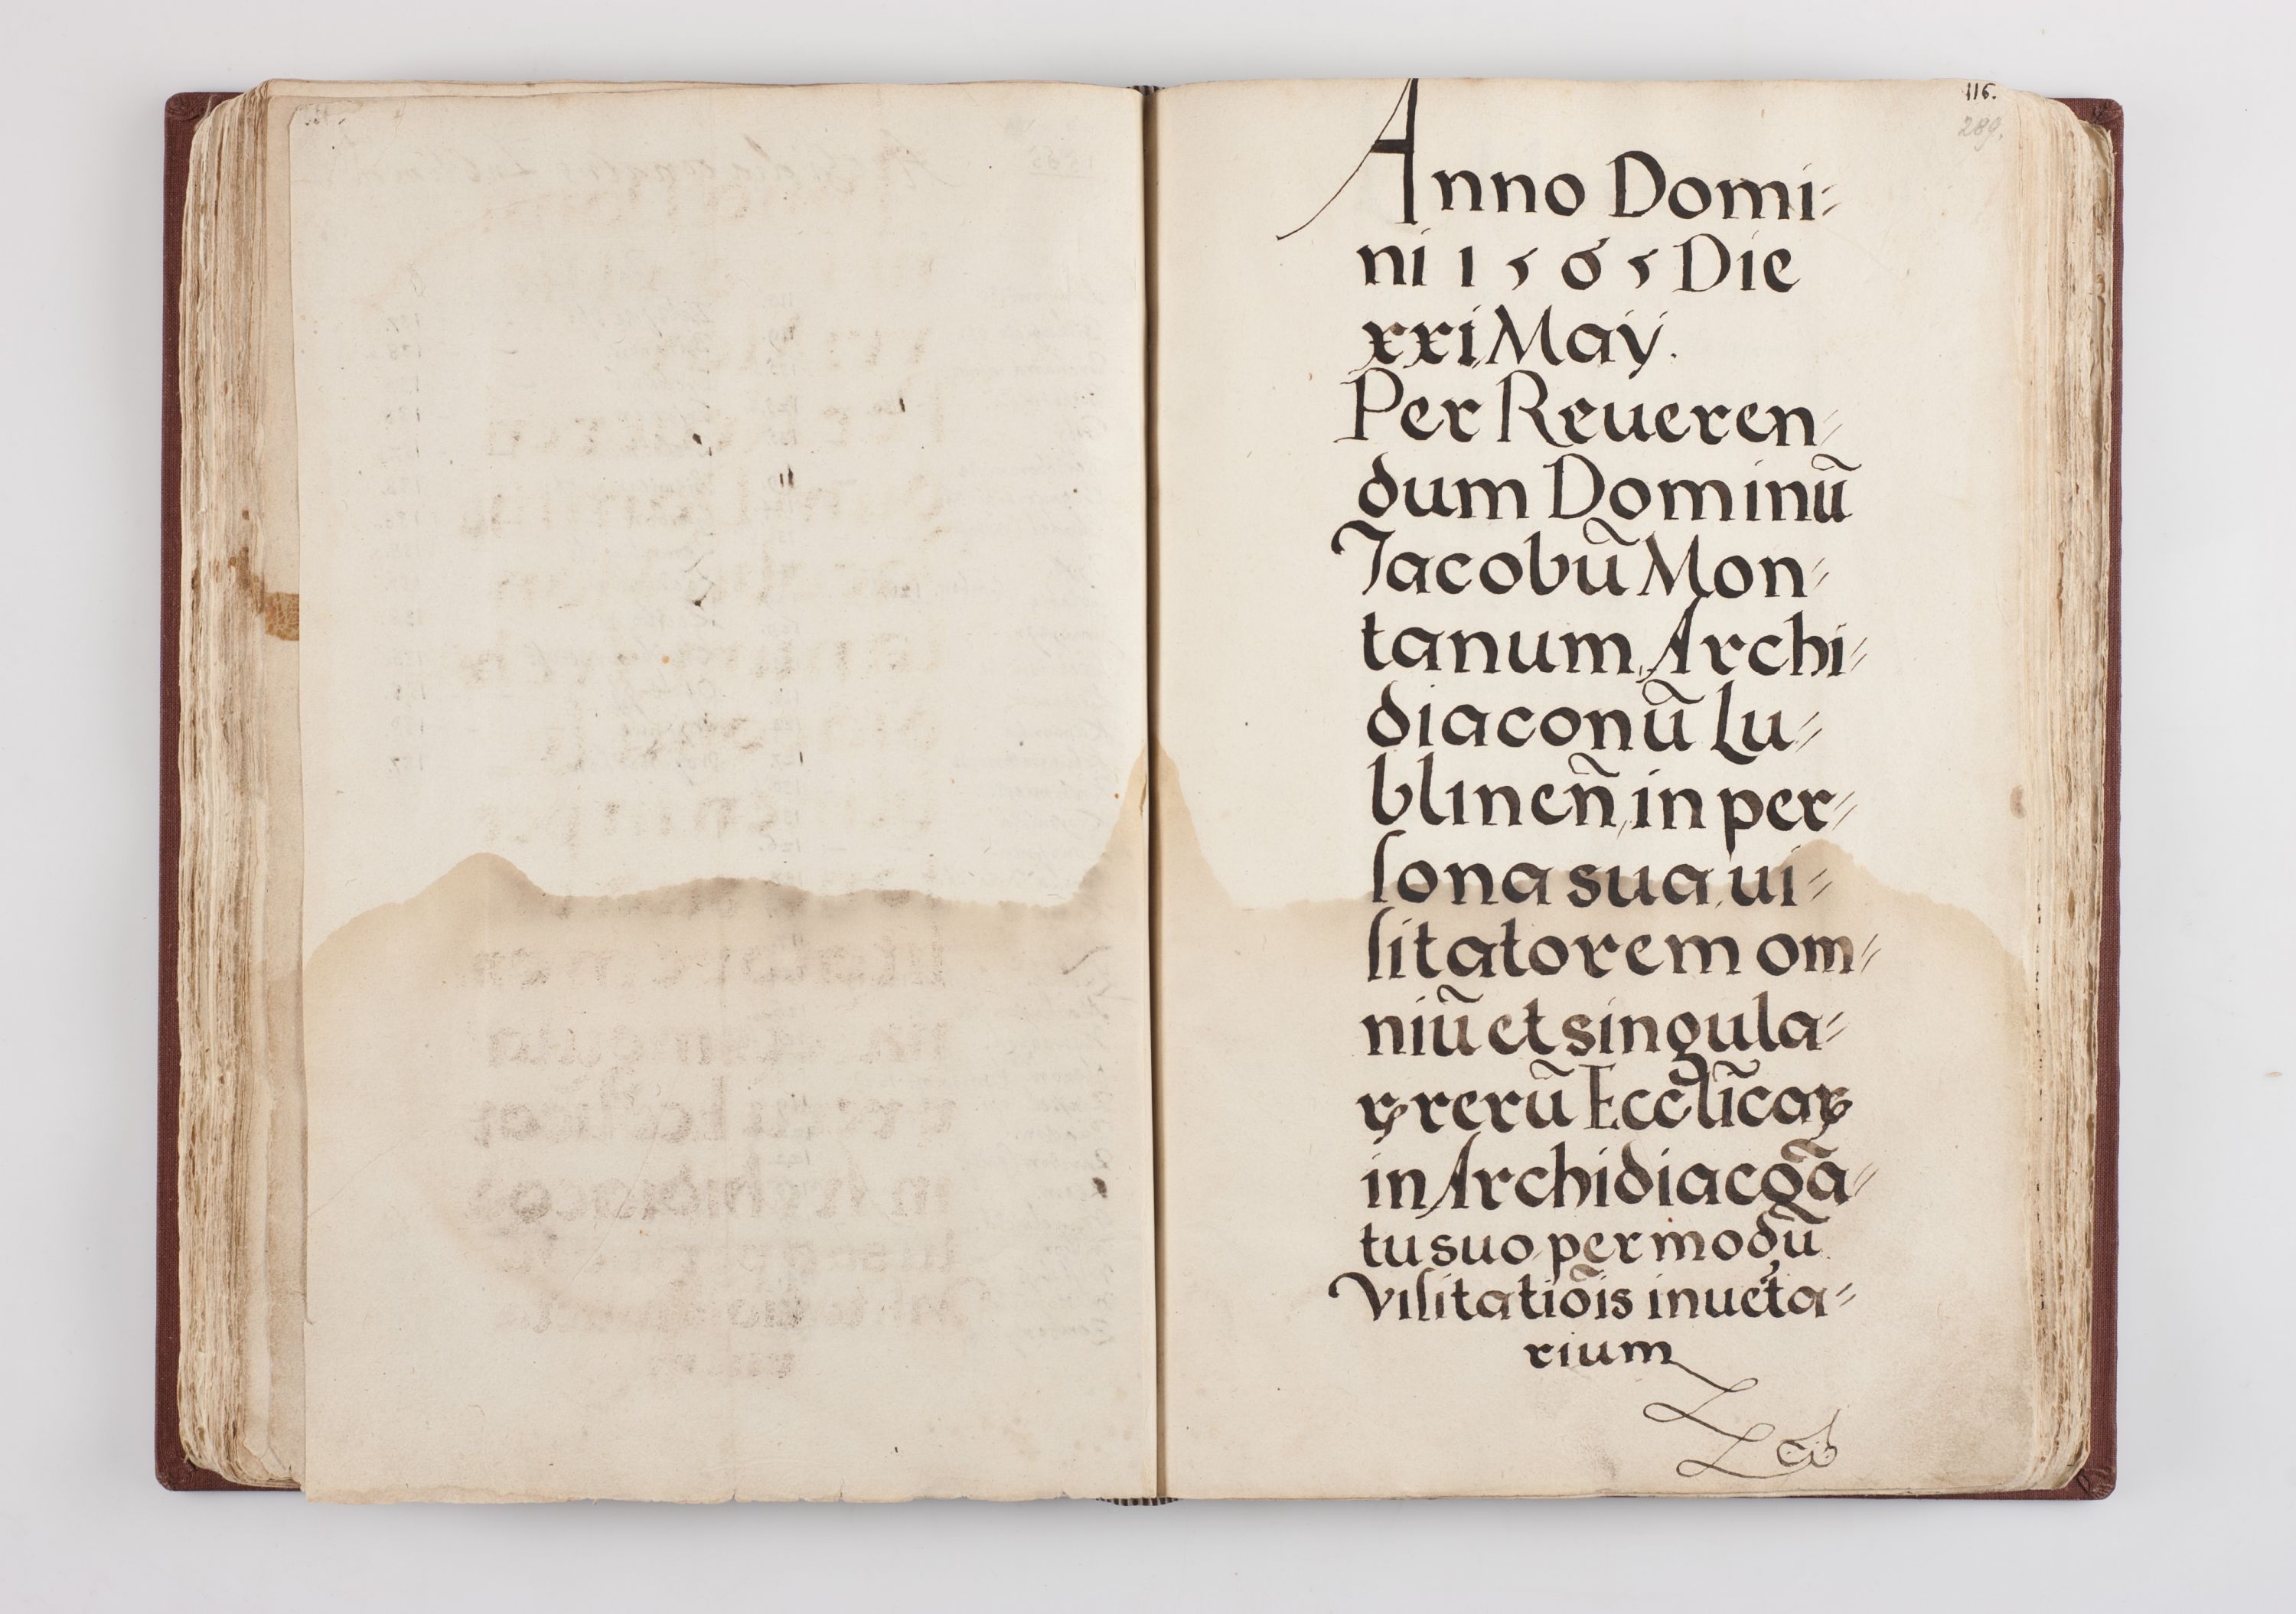 116.
289.
Anno Domi=
ni 1565 Die
xxi May.
Per Reueren=
dum Dominũ
Jacobũ Mon=
tanum Archi=
diaconũ Lu=
blineñ in per=
sona sua, ui=
sitatorem om=
niũ et singula=
rꝝ rerũ Eccl̃icaꝝ
in Archidiacoña=
tu suo per modũ
Visitatiõis inuẽta=
rium